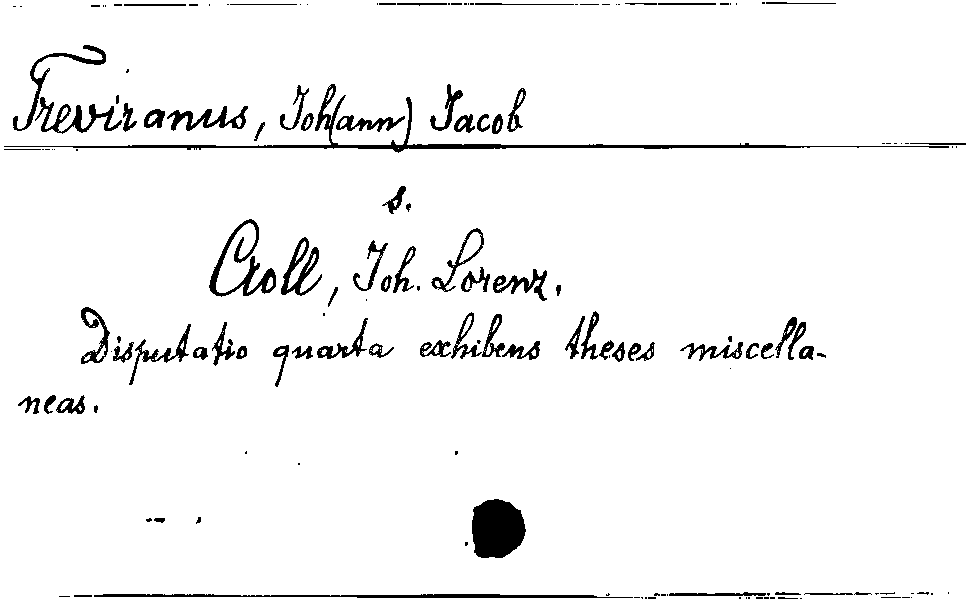 Treviranus, Joh(ann) Jacob
s.
Croll, Joh. Lorenz.
Disputatio quarta exhibens theses miscella-
neas.